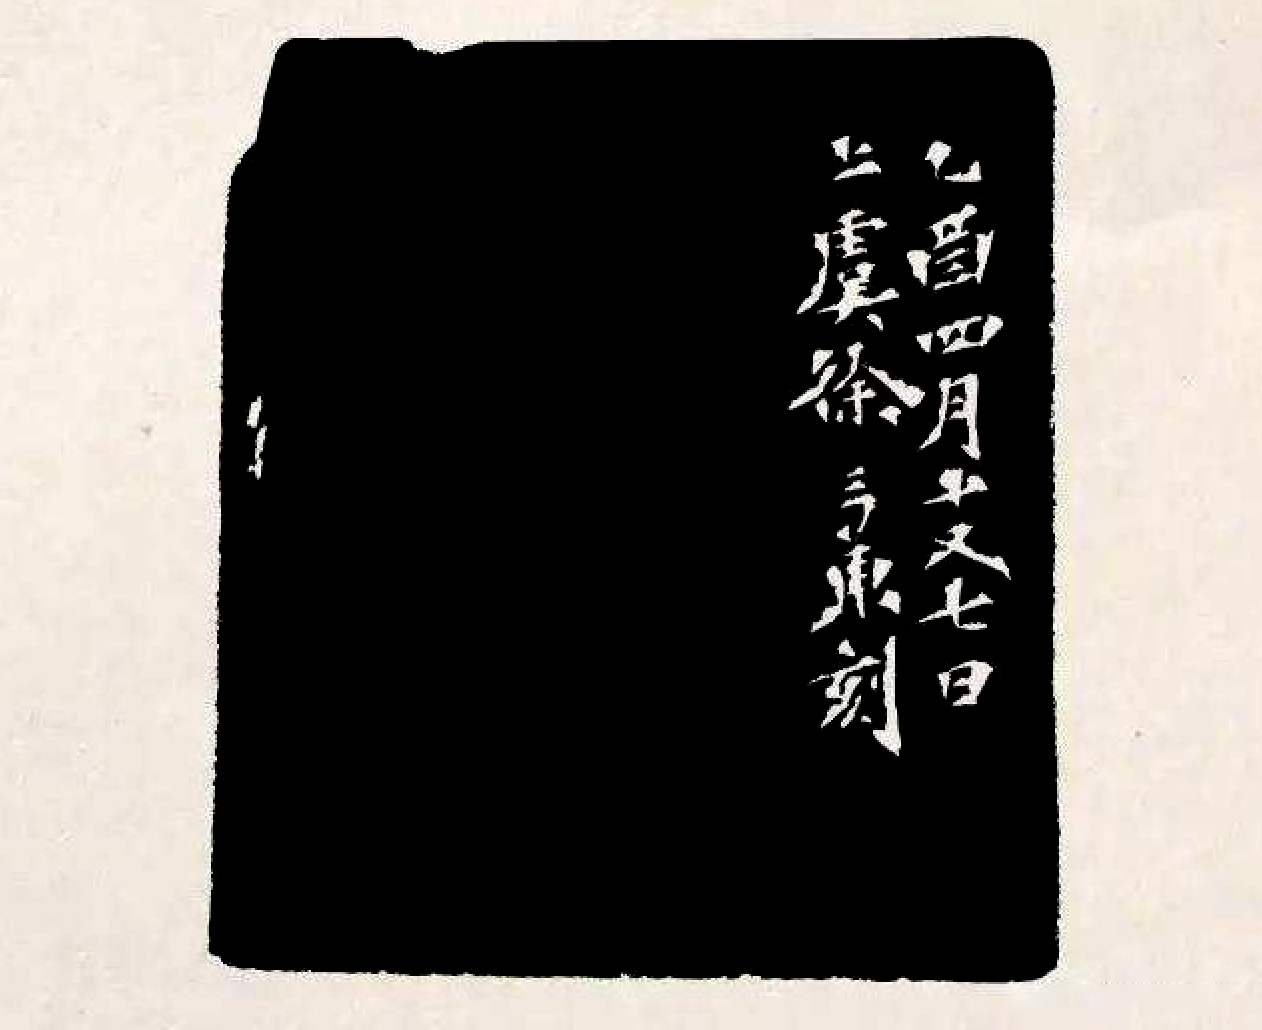 乙酉四月十又七日
上虞徐三庚刻